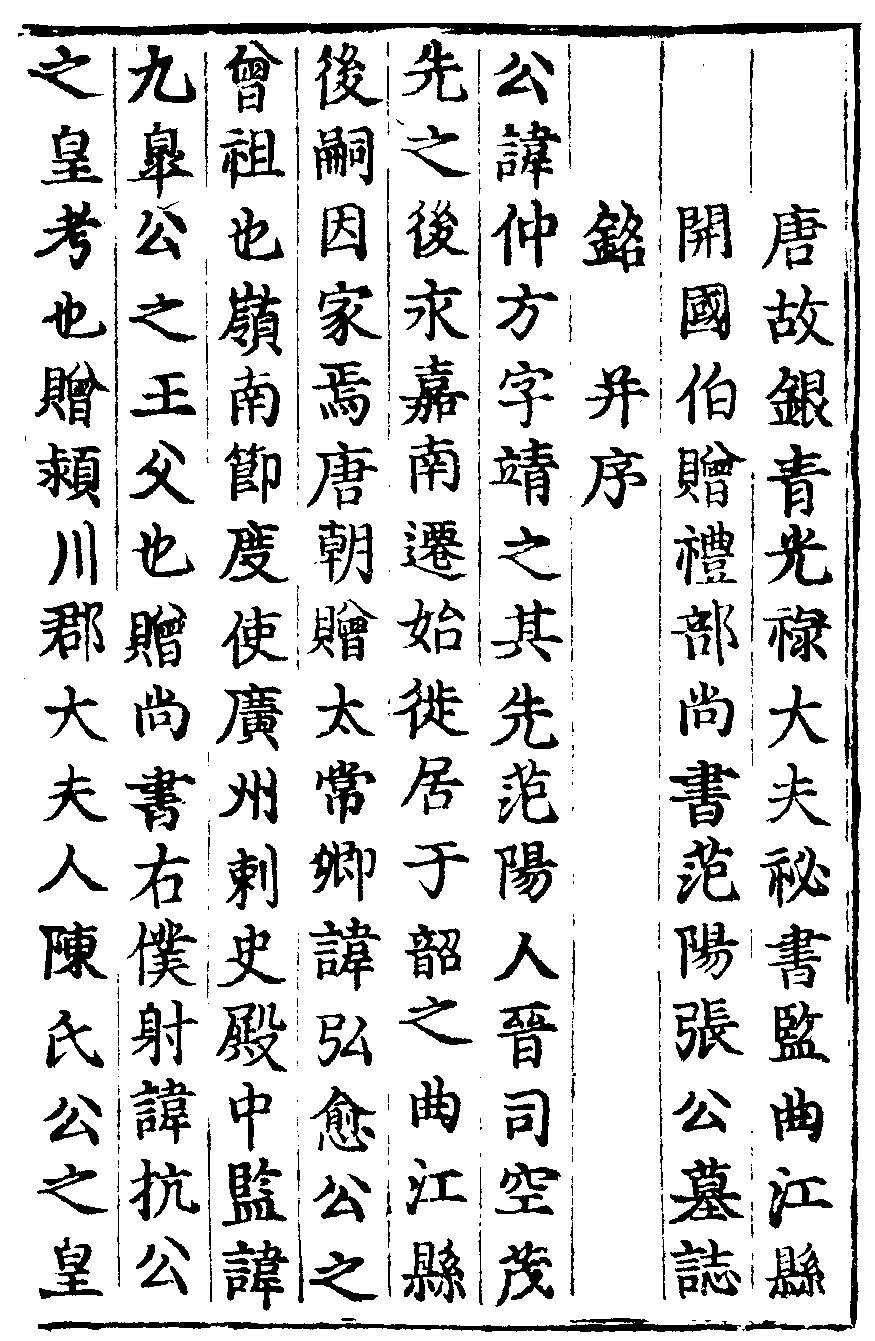 唐故銀青光祿大夫祕書監曲江縣
開國伯贈禮部尚書范陽張公墓誌
銘 并序
公諱仲方字靖之其先范陽人晉司空茂
先之後永嘉南遷始徙居于韶之曲江縣
後嗣因家焉唐朝贈太常卿諱弘愈公之
曾祖也嶺南節度使廣州刺史殿中監諱
九皐公之王父也贈尚書右僕射諱抗公
之皇考也贈潁川郡大夫人陳氏公之皇